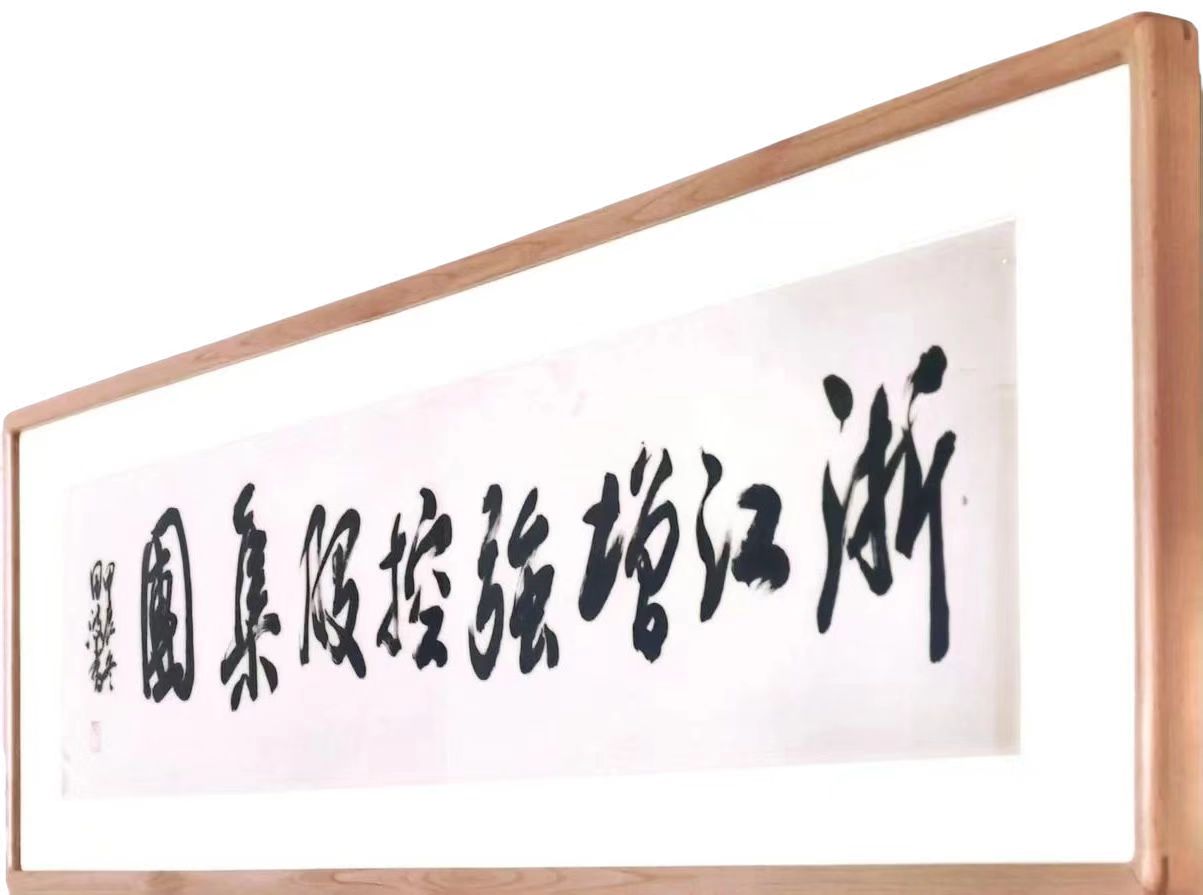 浙江增強控股集團